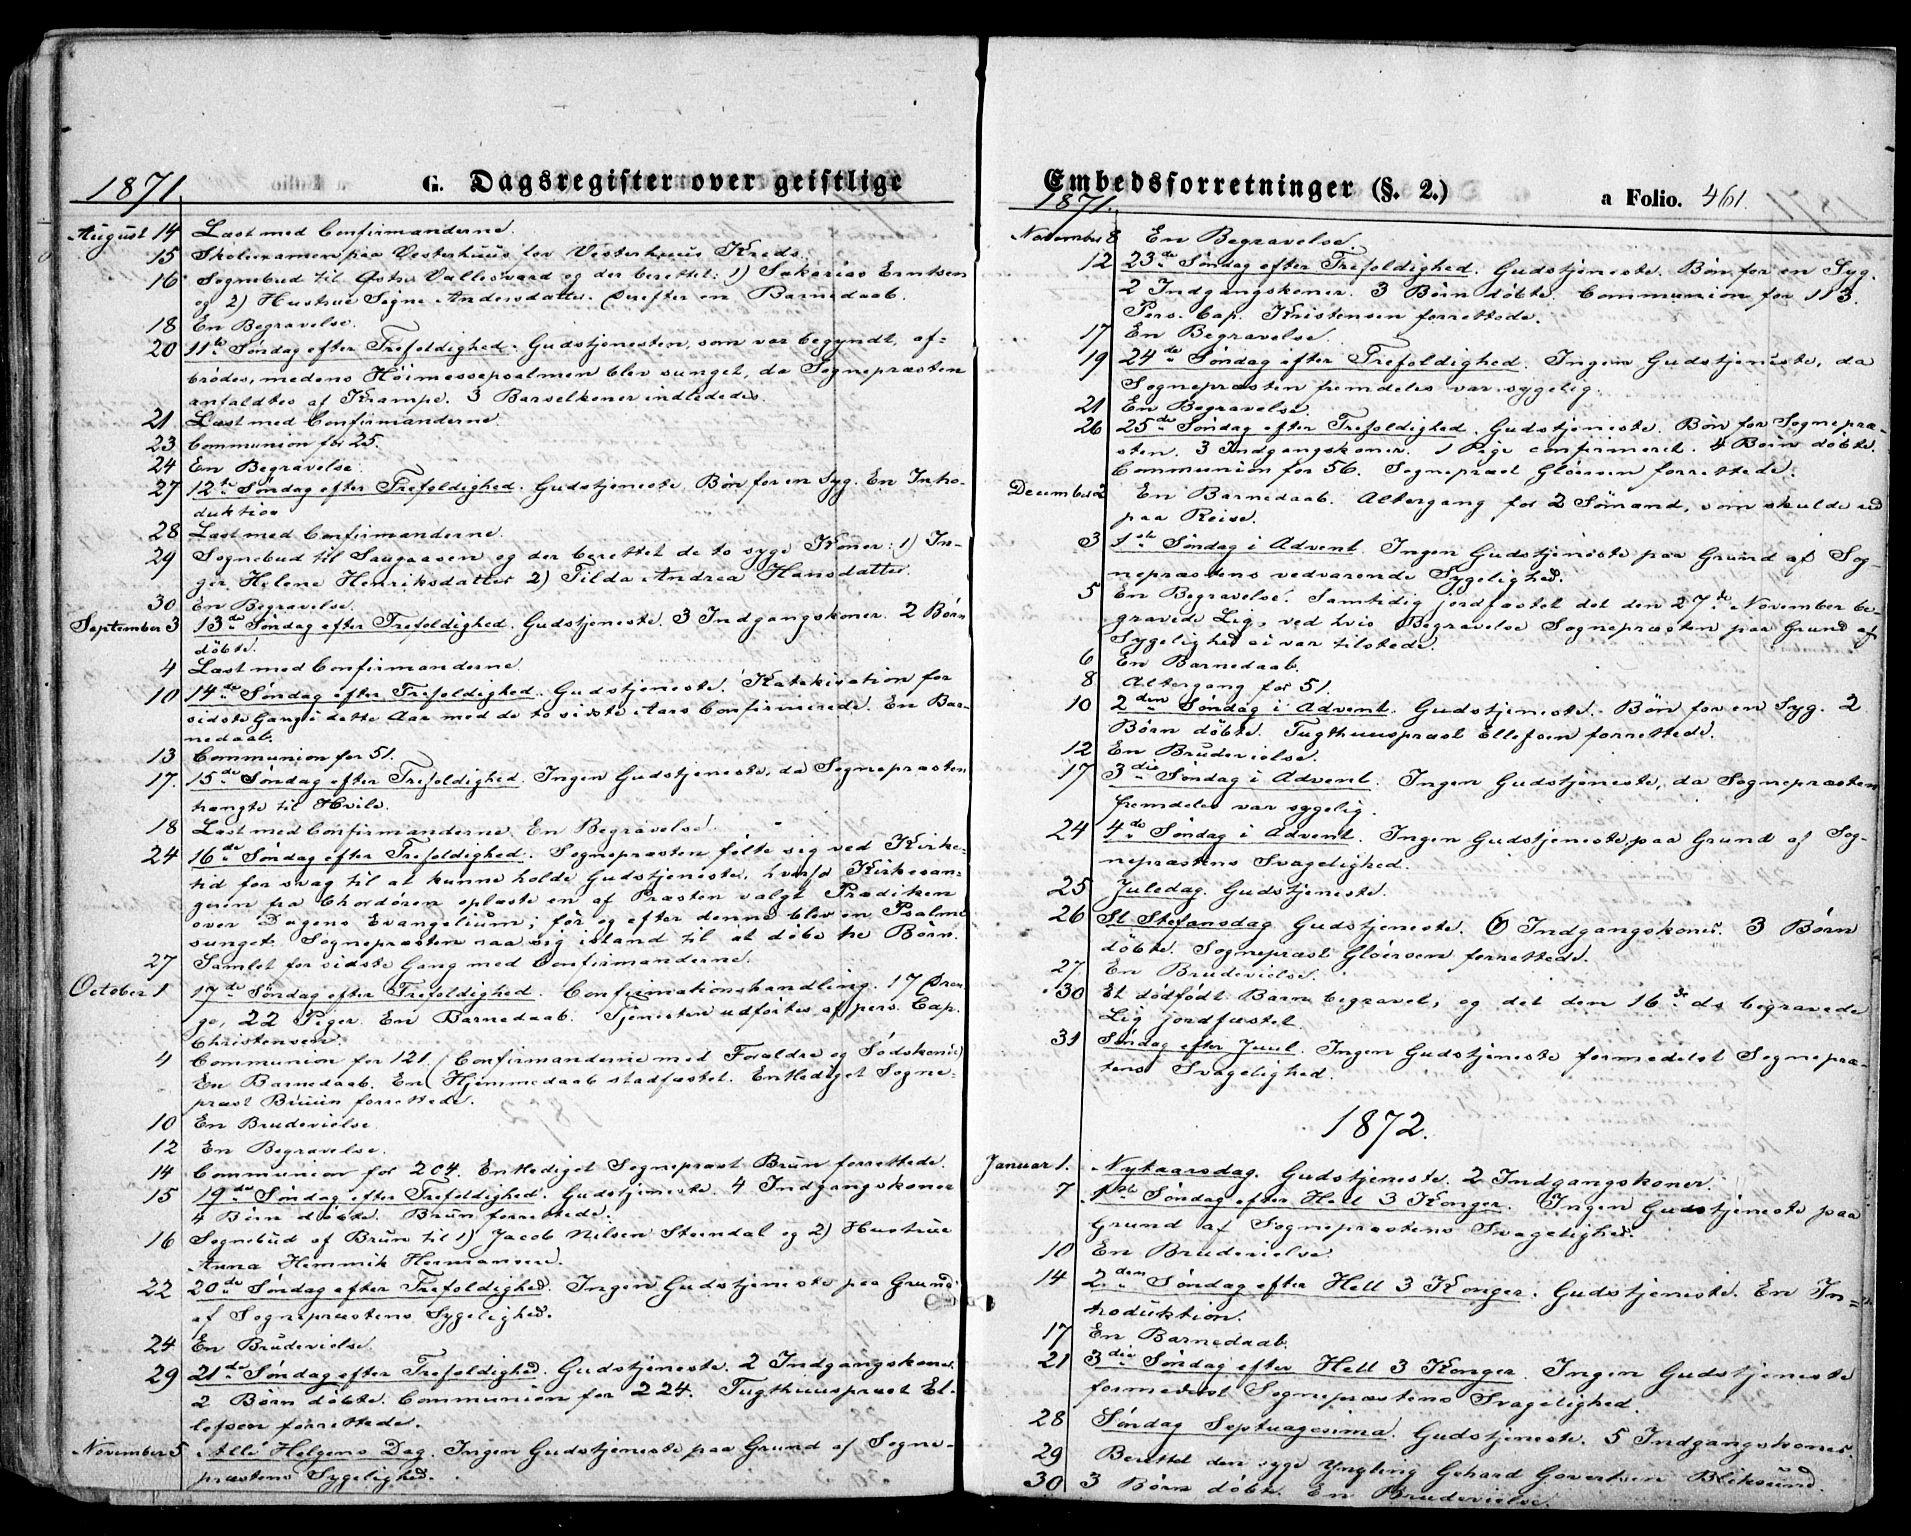 1871. G. Dagsregister over geistlige
August 14 Læst med Confirmanderne.
15 Skolexamen paa Vesterhuus for Vesterhuus Kreds.
16 Sognebud til Østre Vallesværd og der berettet: 1) Sakarias Erntsen
og 2) Hustrue Signe Andersdatter. Derefter en Barnedaab.
18 En Begravelse.
20 11te Søndag efter Trefoldighed. Gudstjenesten, som var begyndt, af-
brødes, medens Høimessepsalmen blev sunget, da Sognepræsten
anfaldtes af Krampe. 3 Barselkoner indlededes.
21 Læst med Confirmanderne.
23 Communion for 25.
24 En Begravelse.
27 12te Søndag efter Trefoldighed. Gudstjeneste. Bøn for en Syg. En Intro-
duktion
28 Læst med Confirmanderne.
29 Sognebud til Saugaasen og der berettet de to syge Koner: 1) In-
ger Helene Henriksdatter 2) Tilda Andrea Hansdatter.
30 En Begravelse.
September 3 13de Søndag efter Trefoldighed. Gudstjeneste. 3 Indgangskoner. 2 Børn
döbte.
4 Læst med Confirmanderne.
10 14de Søndag efter Trefoldighed. Gudstjeneste. Katekisation for
sidste Gang i dette Aar med de to sidste Aars Confirmerede. En Bar-
nedaab.
13 Communion for 51.
17. 15de Søndag efter Trefoldighed. Ingen Gudstjeneste, da Sognepræsten
trængte til Hvile.
18 Læst med Confirmanderne. En Begravelse.
24 16de Søndag efter Trefoldighed. Sognepræsten følte sig ved Kirke-
tid for svag til at kunne holde Gudstjeneste, hvorfor Kirkesan-
geren fra Chordøren oplæste en af Præsten valgt Prædiken
over Dagens Evangelium; før og efter denne blev en Psalme
sunget. Sognepræsten saa sig istand til at døbe tre Børn.
27 Samlet for sidste Gang med Confirmanderne.
October 1 17de Søndag efter Trefoldighed. Confirmationshandling. 17 Dren-
ge, 22 Piger. En Barnedaab. Tjenesten udførtes af pers. Cap.
Christensen.
4 Communion for 121. (Confirmanderne med Foraldre og Sødskende)
En Barnedaab. En Hjemmedaab stadfæstet. Entlediget Sogne-
præst Bruun forrettede.
10 En Brudevielse.
12 En Begravelse.
14 Communion for 204. Entlediget Sognepræst Brun forrettede.
15 19de Søndag efter Trefoldighed. Gudstjeneste. 4 Indgangskoner
4 Børn døbte. Brun forrettede.
16 Sognebud af Brun til 1) Jacob Nilsen Steindal og 2) Hustrue
Anna Hemmik Hermansen.
22 20de Søndag efter Trefoldighed. Ingen Gudstjeneste paa Grund
af Sognepræstens Sygelighed.
24 En Brudevielse.
29 21de Søndag efter Trefoldighed. Gudstjeneste. 2 Indgangskoner.
2 Børn döbte. Communion for 224. Tugthuuspræst El-
lefsen forrettede.
November 5 Alle Helgens Dag. Ingen Gudstjeneste paa Grund af Sogne-
præstens Sygelighed.
Embedsforretninger (§. 2.) a Folio. 461.
1871.
November 8 En Begravelse.
12 23de Søndag efter Trefoldighed. Gudstjeneste. Bøn for en Syg.
2 Indgangskoner. 3 Børn döbte. Communion for 113.
Pers. Cap. Kristensen forrettede.
17 En Begravelse.
19 24de Søndag efter Trefoldighed. Ingen Gudstjeneste, da
Sognepræsten fremdeles var sygelig.
21 En Begravelse.
26 25de Søndag efter Trefoldighed. Gudstjeneste. Bøn for Sognepræ-
sten. 3 Indgangskoner. 1 Pige confirmeret. 4 Børn döbte.
Communion for 56. Sognepræst Gløersen forrettede.
December 2 En Barnedaab. Altergang for 2 Sömænd, som skulde ud
paa Reise.
3 1ste Søndag i Advent. Ingen Gudstjeneste paa Grund af Sog-
nepræstens vedvarende Sygelighed.
5 En Begravelse. Samtidig jordfæstet det den 27de November be-
gravede Lig, ved hvis Begravelse Sognepræsten paa Grund af
Sygelighed ei var tilstede.
6 En Barnedaab.
8 Altergang for 51.
10 2den Søndag i Advent. Gudstjeneste. Bøn for en Syg. 2
Børn döbte. Tugthuuspræst Ellefsen forrettede.
12 En Brudevielse.
17 3die Søndag i Advent. Ingen Gudstjeneste, da Sognepræsten
fremdeles var sygelig.
24 4de Søndag i Advent. Ingen Gudstjeneste paa Grund af Sog-
nepræstens Svagelighed.
25 Juledag. Gudstjeneste.
26 St Stefansdag Gudstjeneste. 6 Indgangskoner. 3 Børn
döbte. Sognepræst Gløersen forrettede.
27 En Brudevielse.
30 Et dödfödt Barn begravet, og det den 16de ds begravede
Lig jordfæstet.
31 Søndag efter Juul. Ingen Gudstjeneste formedelst Sognepræ-
stens Svagelighed.
1872.
Januar 1. Nytaarsdag. Gudstjeneste. 2 Indgangskoner.
7 1ste Søndag efter Hell 3 Konger. Ingen Gudstjeneste paa
Grund af Sognepræstens Svagelighed.
10 En Brudevielse.
14 2den Søndag efter Hell 3 Konger. Gudstjeneste. En In-
troduktion.
17 En Barnedaab.
21 3die Søndag efter Hell 3 Konger. Ingen Gudstjeneste
formedelst Sognepræstens Svagelighed.
28 Søndag Septuagesima. Gudstjeneste. 5 Indgangskoner.
29 Berettet den syge Yngling Gehard Govertsen Bliksund.
30 3 Børn döbt. En Brudevielse.